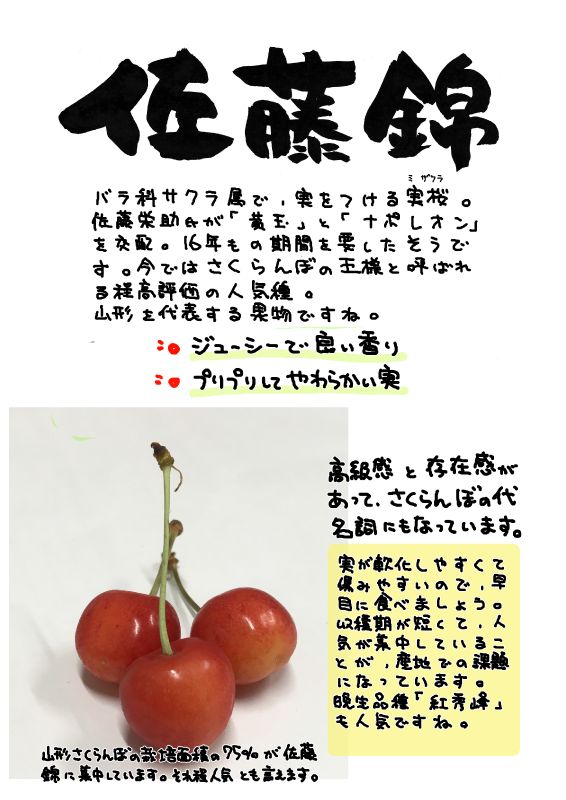 佐藤錦
ミザクラ
バラ科サクラ属で，実をつける実桜。
佐藤栄助氏が「黄玉」と「ナポレオン」
を交配。16年もの期間を要したそうで
す。今ではさくらんぼの王様と呼ばれ
る程高評価の人気種。
山形を代表する果物ですね。
ジューシーで良い香り
プリプリしてやわらかい実
高級感と存在感が
あって、さくらんぼの代
名詞にもなっています。
実が軟化しやすくて
傷みやすいので，早
目に食べましょう。
収穫期が短くて，人
気が集中しているこ
とが，産地での課題
になっています。
晩生品種「紅秀峰」
も人気ですね。
山形さくらんぼの栽培面積の75%が佐藤
錦に集中しています。それ程人気とも言えます。